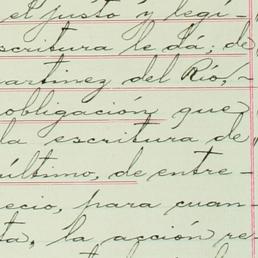 el justo y legí-
scritura le dá; de
artinez del Río,
obligación que
la escritura de
último, de entre-
ecio, para cuan-
ta, la acción re-